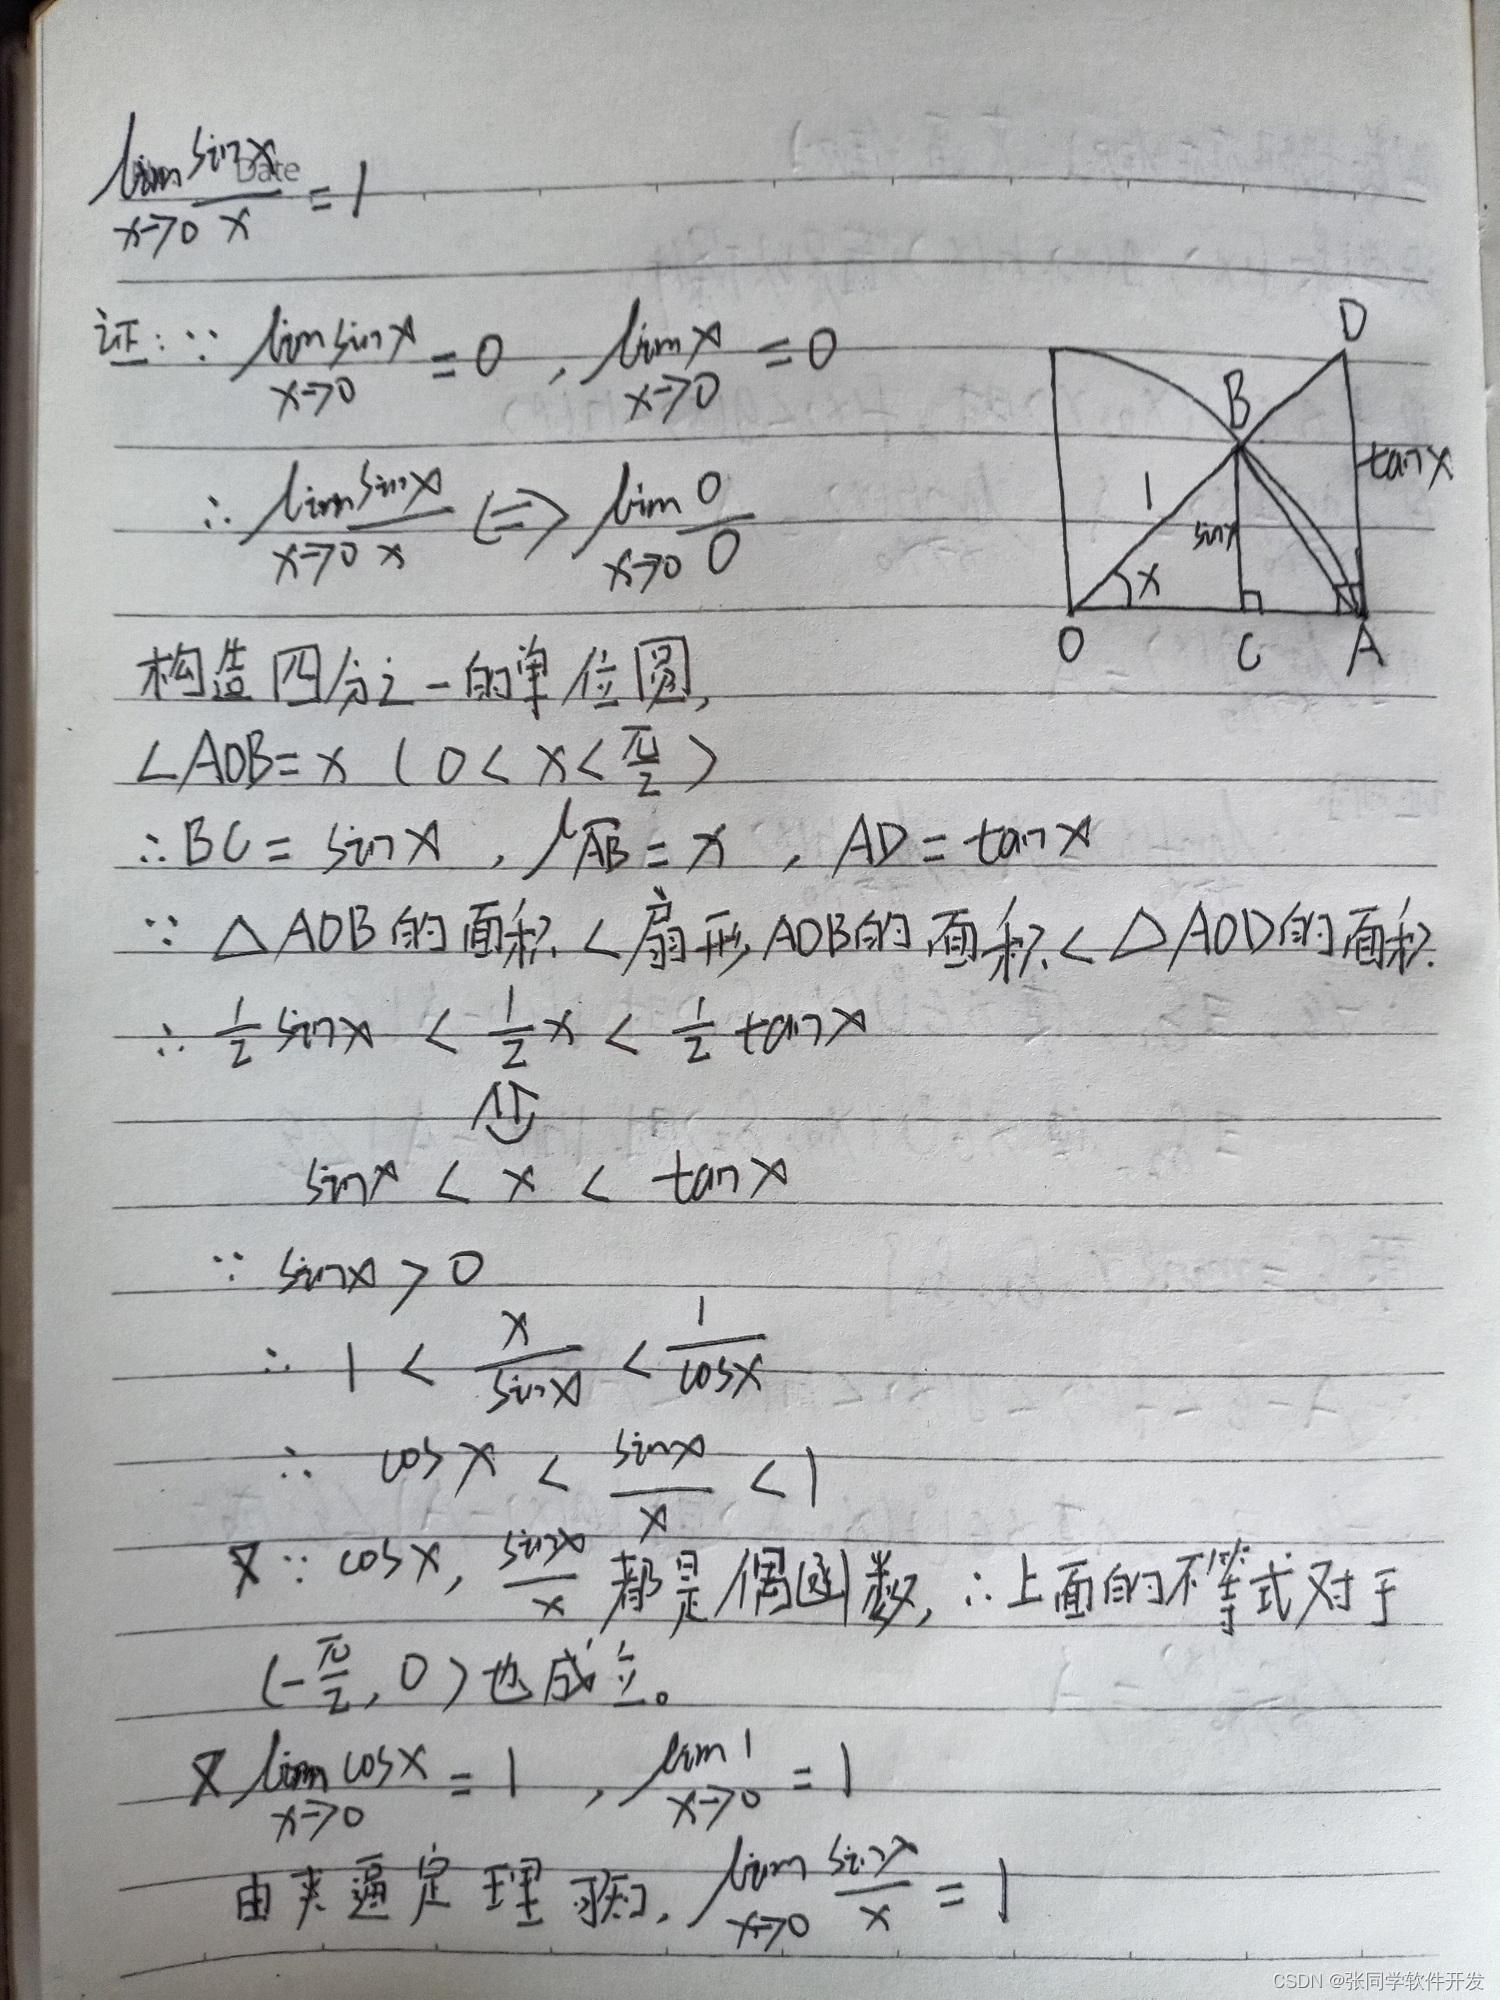 Date
lim sinx/x = 1
x→0
证: ∵ lim sinx = 0 , lim x = 0
x→0 x→0
∴ lim sinx/x <=> lim 0/0
x→0 x→0
D
B
tanx
1
sinx
x
O C A
构造四分之一的单位圆,
∠AOB = x ( 0 < x < π/2 )
∴ BC = sinx , l AB = x , AD = tanx
∵ △AOB的面积 < 扇形AOB的面积 < △AOD的面积
∴ 1/2 sinx < 1/2 x < 1/2 tanx
sinx < x < tanx
∵ sinx > 0
∴ 1 < x/sinx < 1/cosx
∴ cosx < sinx/x < 1
又∵ cosx, sinx/x 都是偶函数, ∴上面的不等式对于
(-π/2, 0) 也成立。
又 lim cosx = 1 , lim 1 = 1
x→0 x→0
由夹逼定理 知, lim sinx/x = 1
x→0
CSDN @张同学软件开发